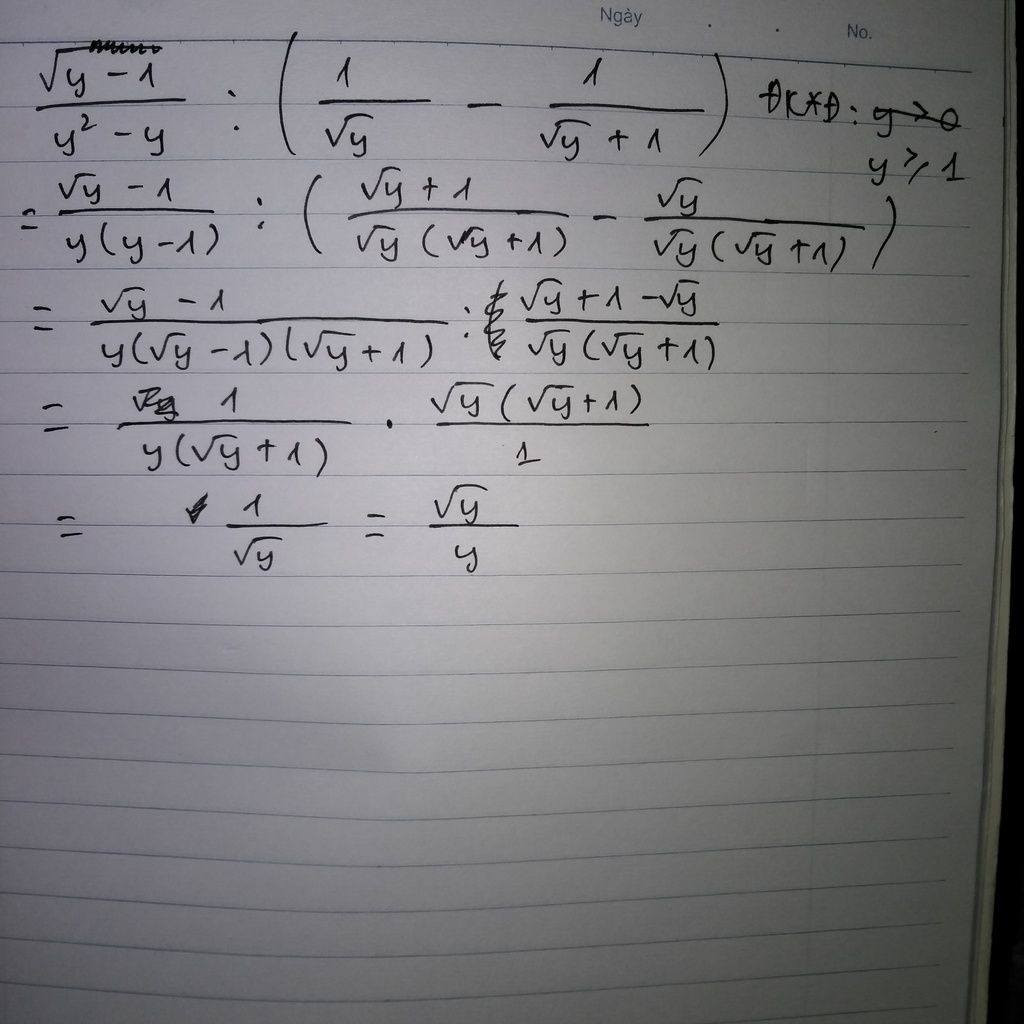 Ngày
No.
(√y - 1)/(y² - y) : (1/√y - 1/(√y + 1)) ĐKXĐ: y > 0
y ⩾ 1
= (√y - 1)/(y(y - 1)) : ((√y + 1)/(√y(√y + 1)) - √y/(√y(√y + 1)))
= (√y - 1)/(y(√y - 1)(√y + 1)) : (√y + 1 - √y)/(√y(√y + 1))
= 1/(y(√y + 1)) . (√y(√y + 1))/1
= 1/√y = √y/y